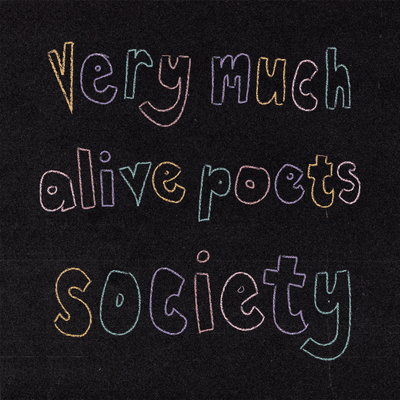 very much
alive poets
society